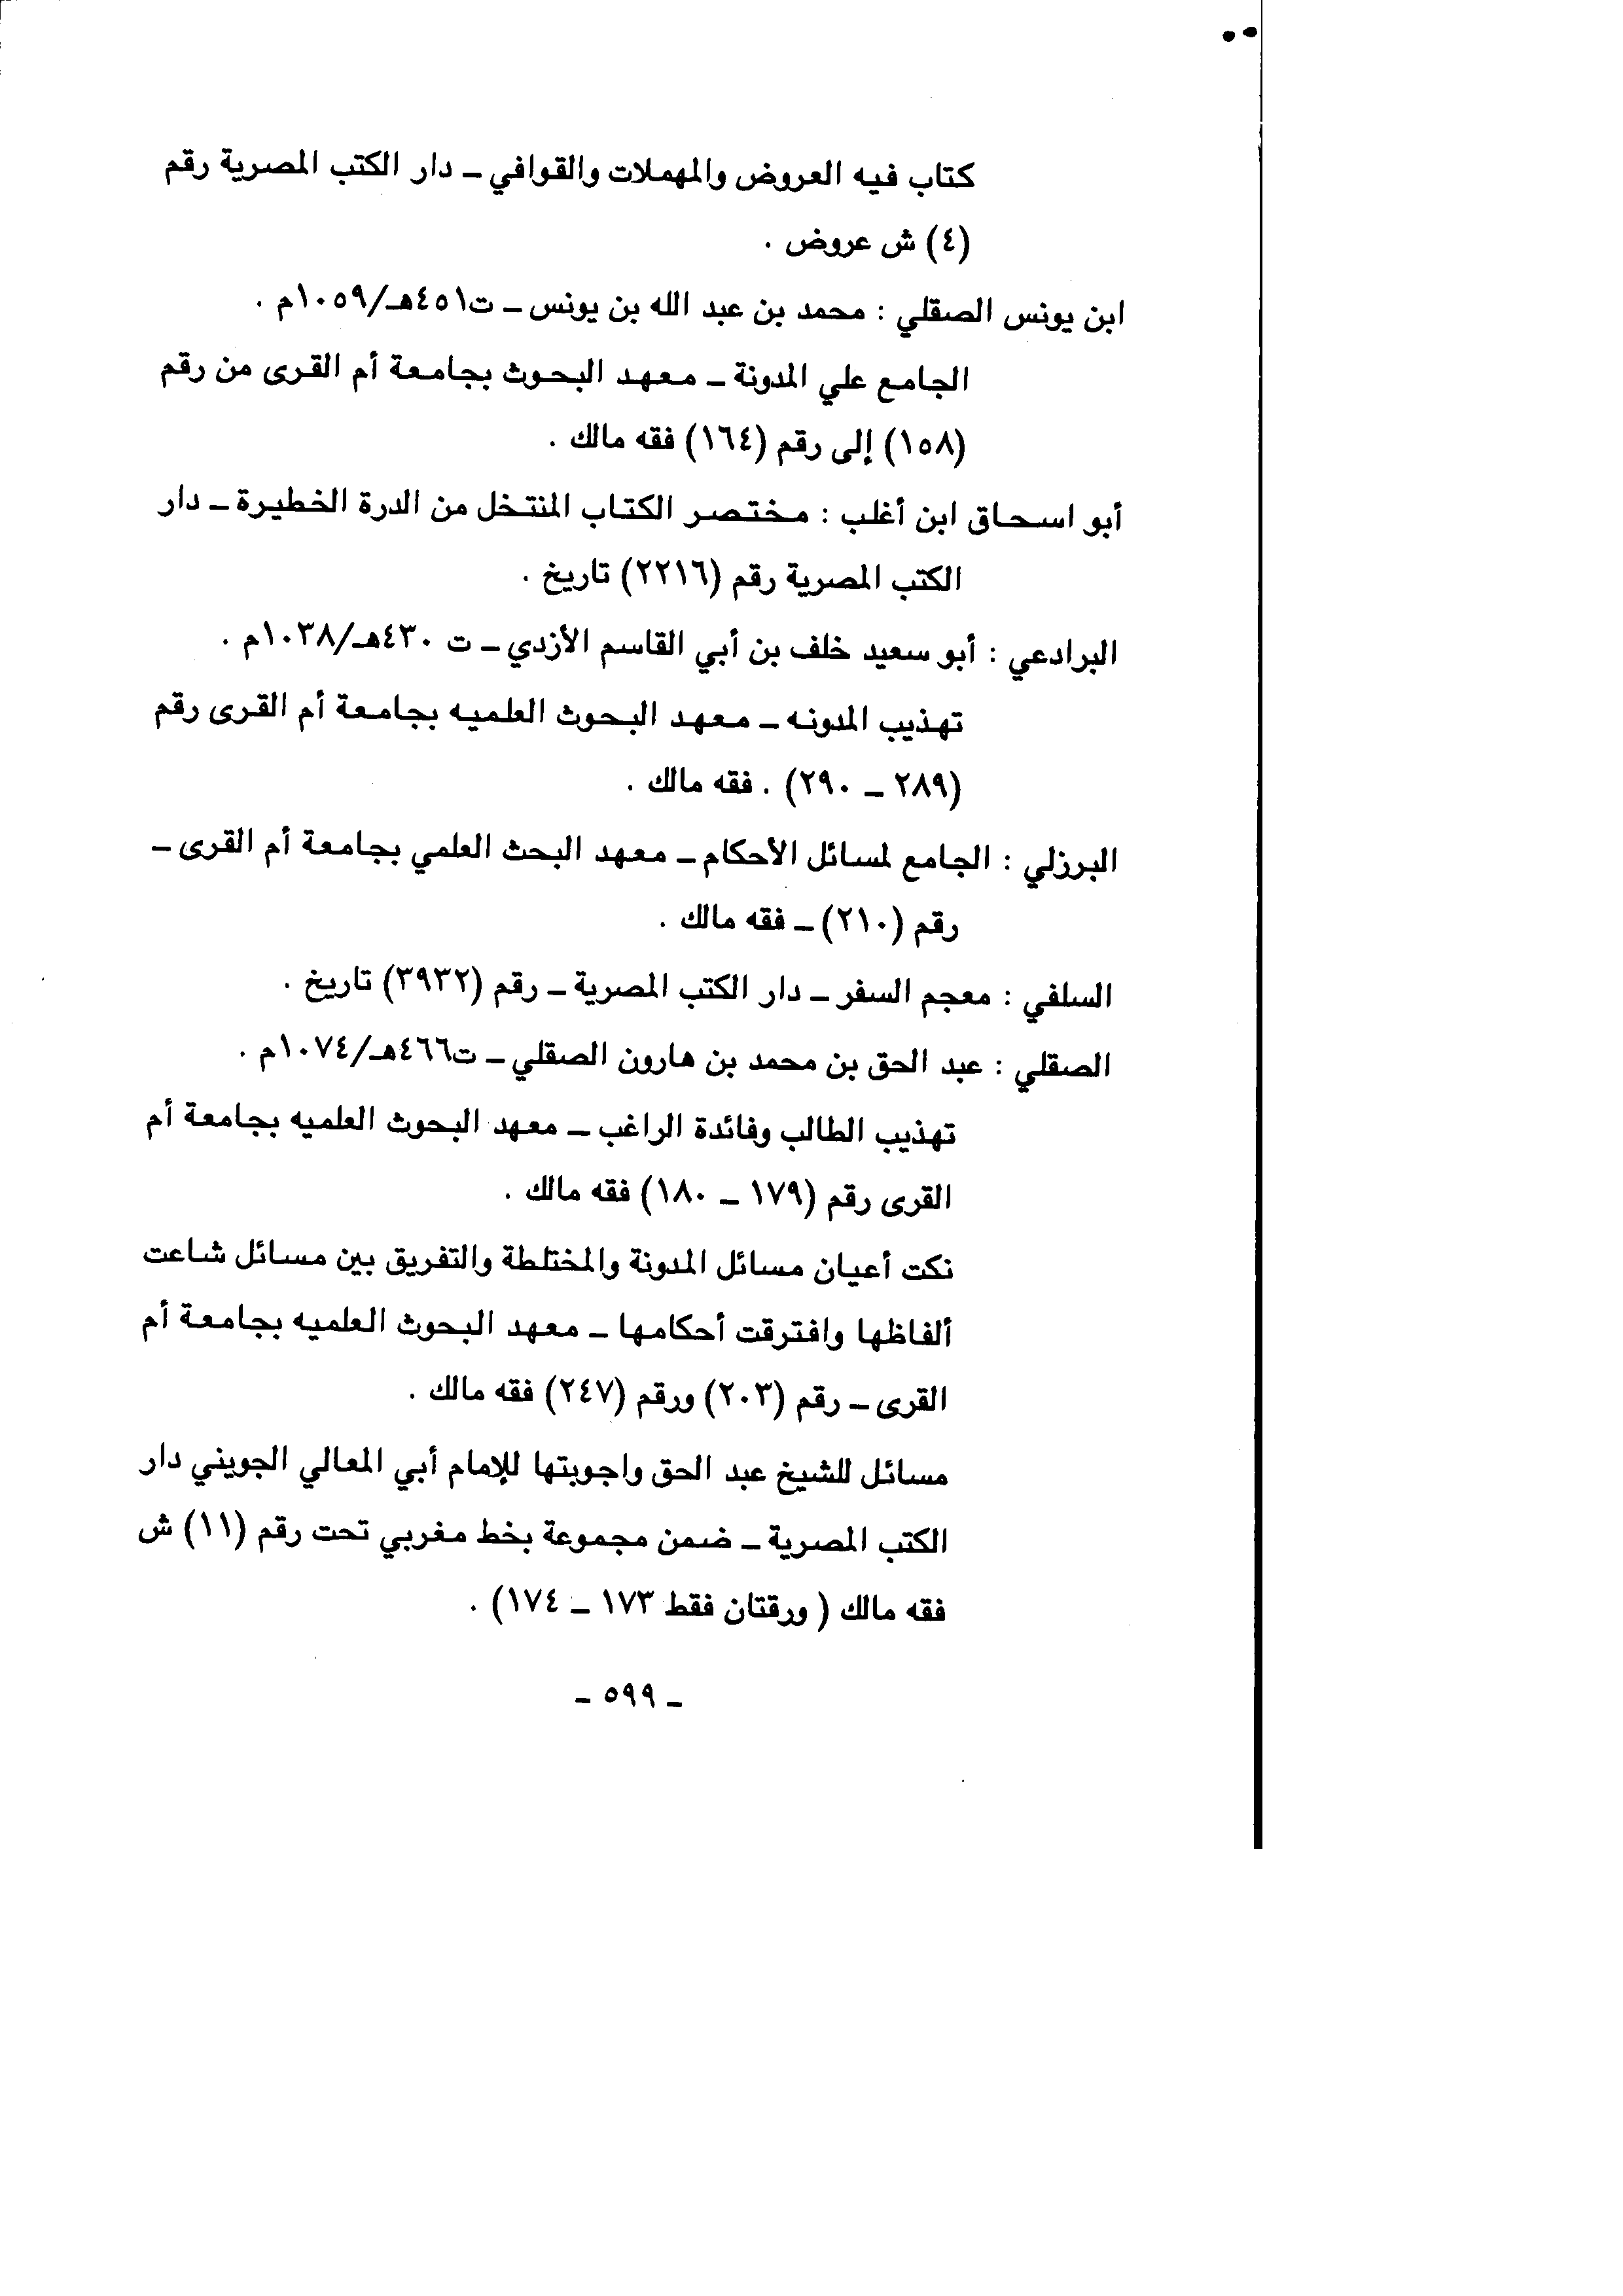 كتاب فيه العروض والمهملات والقوافي ـ دار الكتب المصرية رقم
(٤) ش عروض .
ابن يونس الصقلي : محمد بن عبد الله بن يونس ـ ت٤٥١هـ/١٠٥٩م .
الجامع علي المدونة ـ معهد البحوث بجامعة أم القرى من رقم
(١٥٨) إلى رقم (١٦٤) فقه مالك .
أبو اسحاق ابن أغلب : مختصر الكتاب المنتخل من الدرة الخطيرة ـ دار
الكتب المصرية رقم (٢٢١٦) تاريخ .
البرادعي : أبو سعيد خلف بن أبي القاسم الأزدي ـ ت ٤٣٠هـ/١٠٣٨م .
تهذيب المدونه ـ معهد البحوث العلميه بجامعة أم القرى رقم
(٢٨٩ ـ ٢٩٠) . فقه مالك .
البرزلي : الجامع لمسائل الأحكام ـ معهد البحث العلمي بجامعة أم القرى ـ
رقم (٢١٠) ـ فقه مالك .
السلفي : معجم السفر ـ دار الكتب المصرية ـ رقم (٣٩٣٢) تاريخ .
الصقلي : عبد الحق بن محمد بن هارون الصقلي ـ ت٤٦٦هـ/١٠٧٤م .
تهذيب الطالب وفائدة الراغب ـ معهد البحوث العلميه بجامعة أم
القرى رقم (١٧٩ ـ ١٨٠) فقه مالك .
نكت أعيان مسائل المدونة والمختلطة والتفريق بين مسائل شاعت
ألفاظها وافترقت أحكامها ـ معهد البحوث العلميه بجامعة أم
القرى ـ رقم (٢٠٣) ورقم (٢٤٧) فقه مالك .
مسائل للشيخ عبد الحق واجوبتها للإمام أبي المعالي الجويني دار
الكتب المصرية ـ ضمن مجموعة بخط مغربي تحت رقم (١١) ش
فقه مالك ( ورقتان فقط ١٧٣ ـ ١٧٤) .
ـ ٥٩٩ ـ